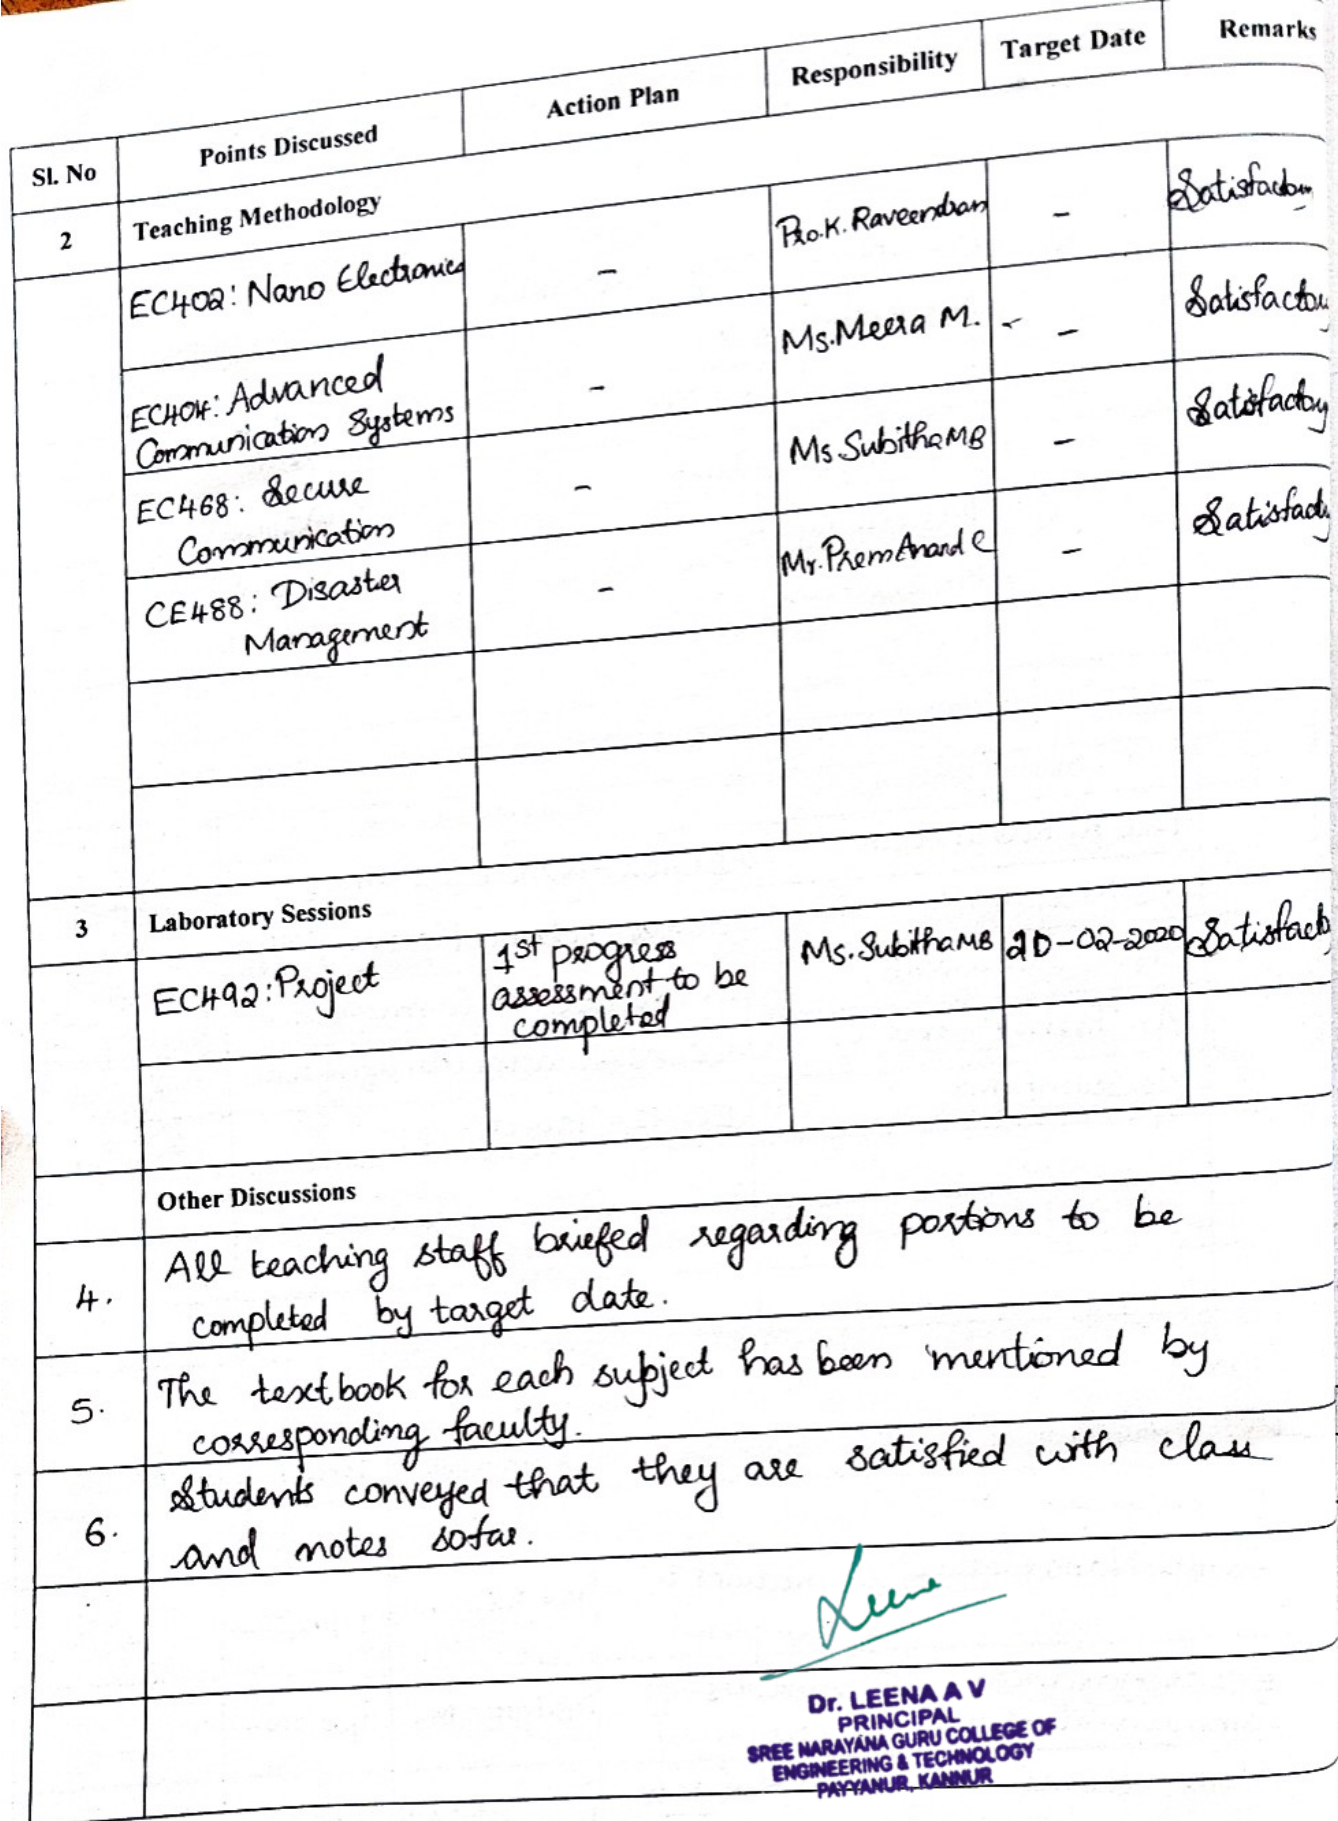 Sl. No Points Discussed Action Plan Responsibility Target Date Remarks
2 Teaching Methodology
EC402: Nano Electronics - Pro.K. Raveendran - Satisfactory
EC404: Advanced - Ms.Meera M. - Satisfactory
Communication Systems
EC468: Secure - Ms Subitha MB - Satisfactory
Communication
CE488: Disaster - Mr. Prem Anand C - Satisfact
Management
3 Laboratory Sessions
EC492: Project 1st progress Ms. Subitha MB 20-02-2020 Satisfact
assessment to be
completed
Other Discussions
4. All teaching staff briefed regarding portions to be
completed by target date.
5. The textbook for each subject has been mentioned by
corresponding faculty.
6. Students conveyed that they are satisfied with class
and notes sofar.
Leena
Dr. LEENA A V
PRINCIPAL
SREE NARAYANA GURU COLLEGE OF
ENGINEERING & TECHNOLOGY
PAYYANUR, KANNUR